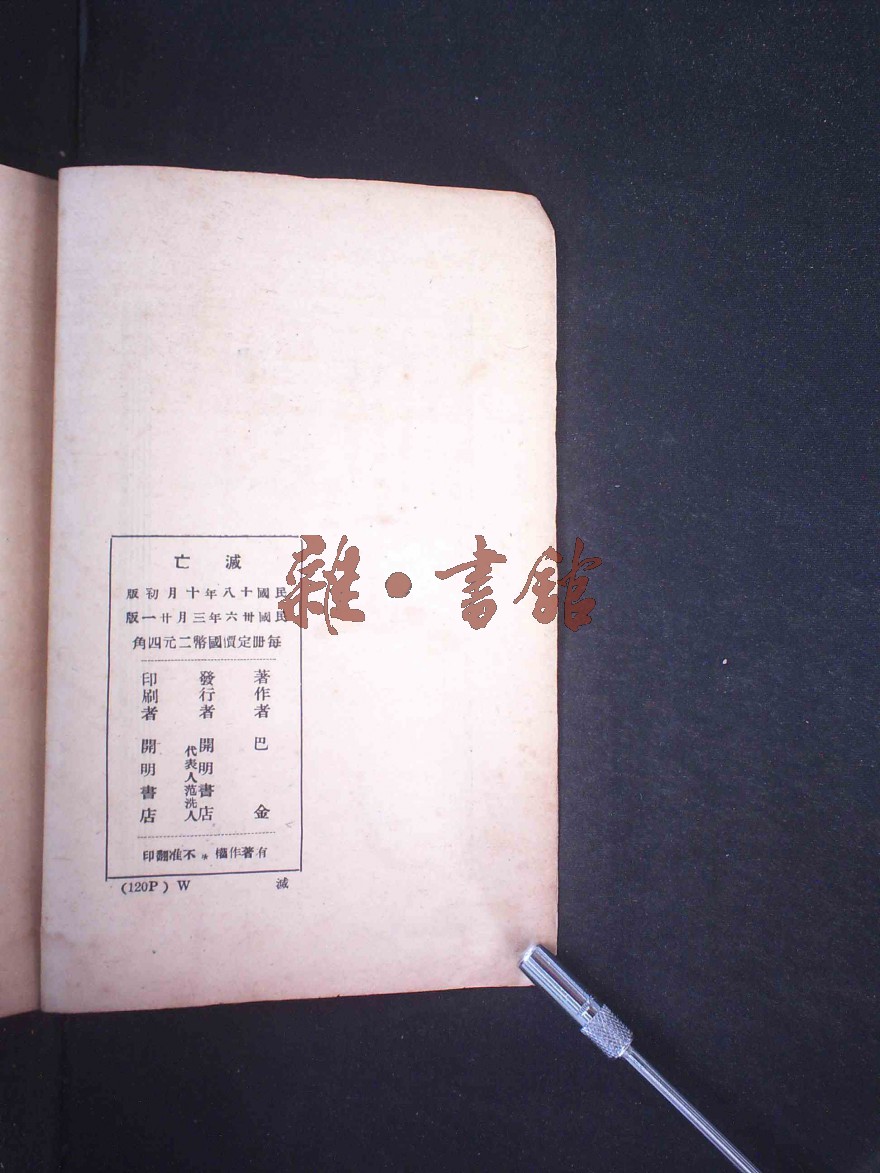 滅亡
民國十八年十月初版
民國卅六年三月廿一版
每冊定價國幣二元四角
著作者 巴金
發行者 開明書店
代表人范洗人
印刷者 開明書店
有著作權*不准翻印
(120P) W 滅
雜·書館